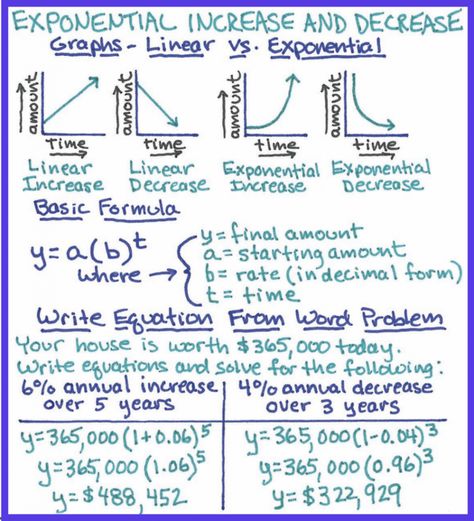 EXPONENTIAL INCREASE AND DECREASE
Graphs - Linear vs. Exponential
amount
amount
amount
amount
Time
time
time
time
Linear Increase
Linear Decrease
Exponential Increase
Exponential Decrease
Basic Formula
y=a(b)^t
where →
y=final amount
a=starting amount
b=rate (in decimal form)
t=time
Write Equation From Word Problem
Your house is worth $365,000 today.
Write equations and solve for the following:
6% annual increase
over 5 years
y=365,000(1+0.06)^5
y=365,000(1.06)^5
y=$488,452
4% annual decrease
over 3 years
y=365,000(1-0.04)^3
y=365,000(0.96)^3
y=$322,929